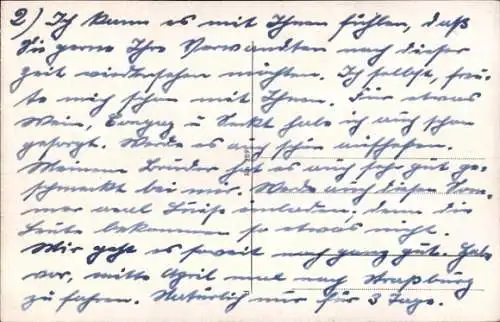 2) Ich kann es mit Ihnen fühlen, daß
Sie gerne Ihre Verwandten nach dieser
Zeit wiedersehen möchten. Ich selbst, freu-
te mich schon mit Ihnen. Für etwas
Wein, u Sekt habe ich auch schon
gesorgt. Werde es auch schön aufheben.
Meinem Bruder hat es auch sehr gut ge-
schmeckt bei mir. Werde auch diesen Som-
mer mal Luise einladen, denn die
Leute bekommen so etwas nicht.
Wir geht es soweit noch ganz gut. Habe
vor, mitte April mal nach Straßburg
zu fahren. Natürlich nur für 3 Tage.